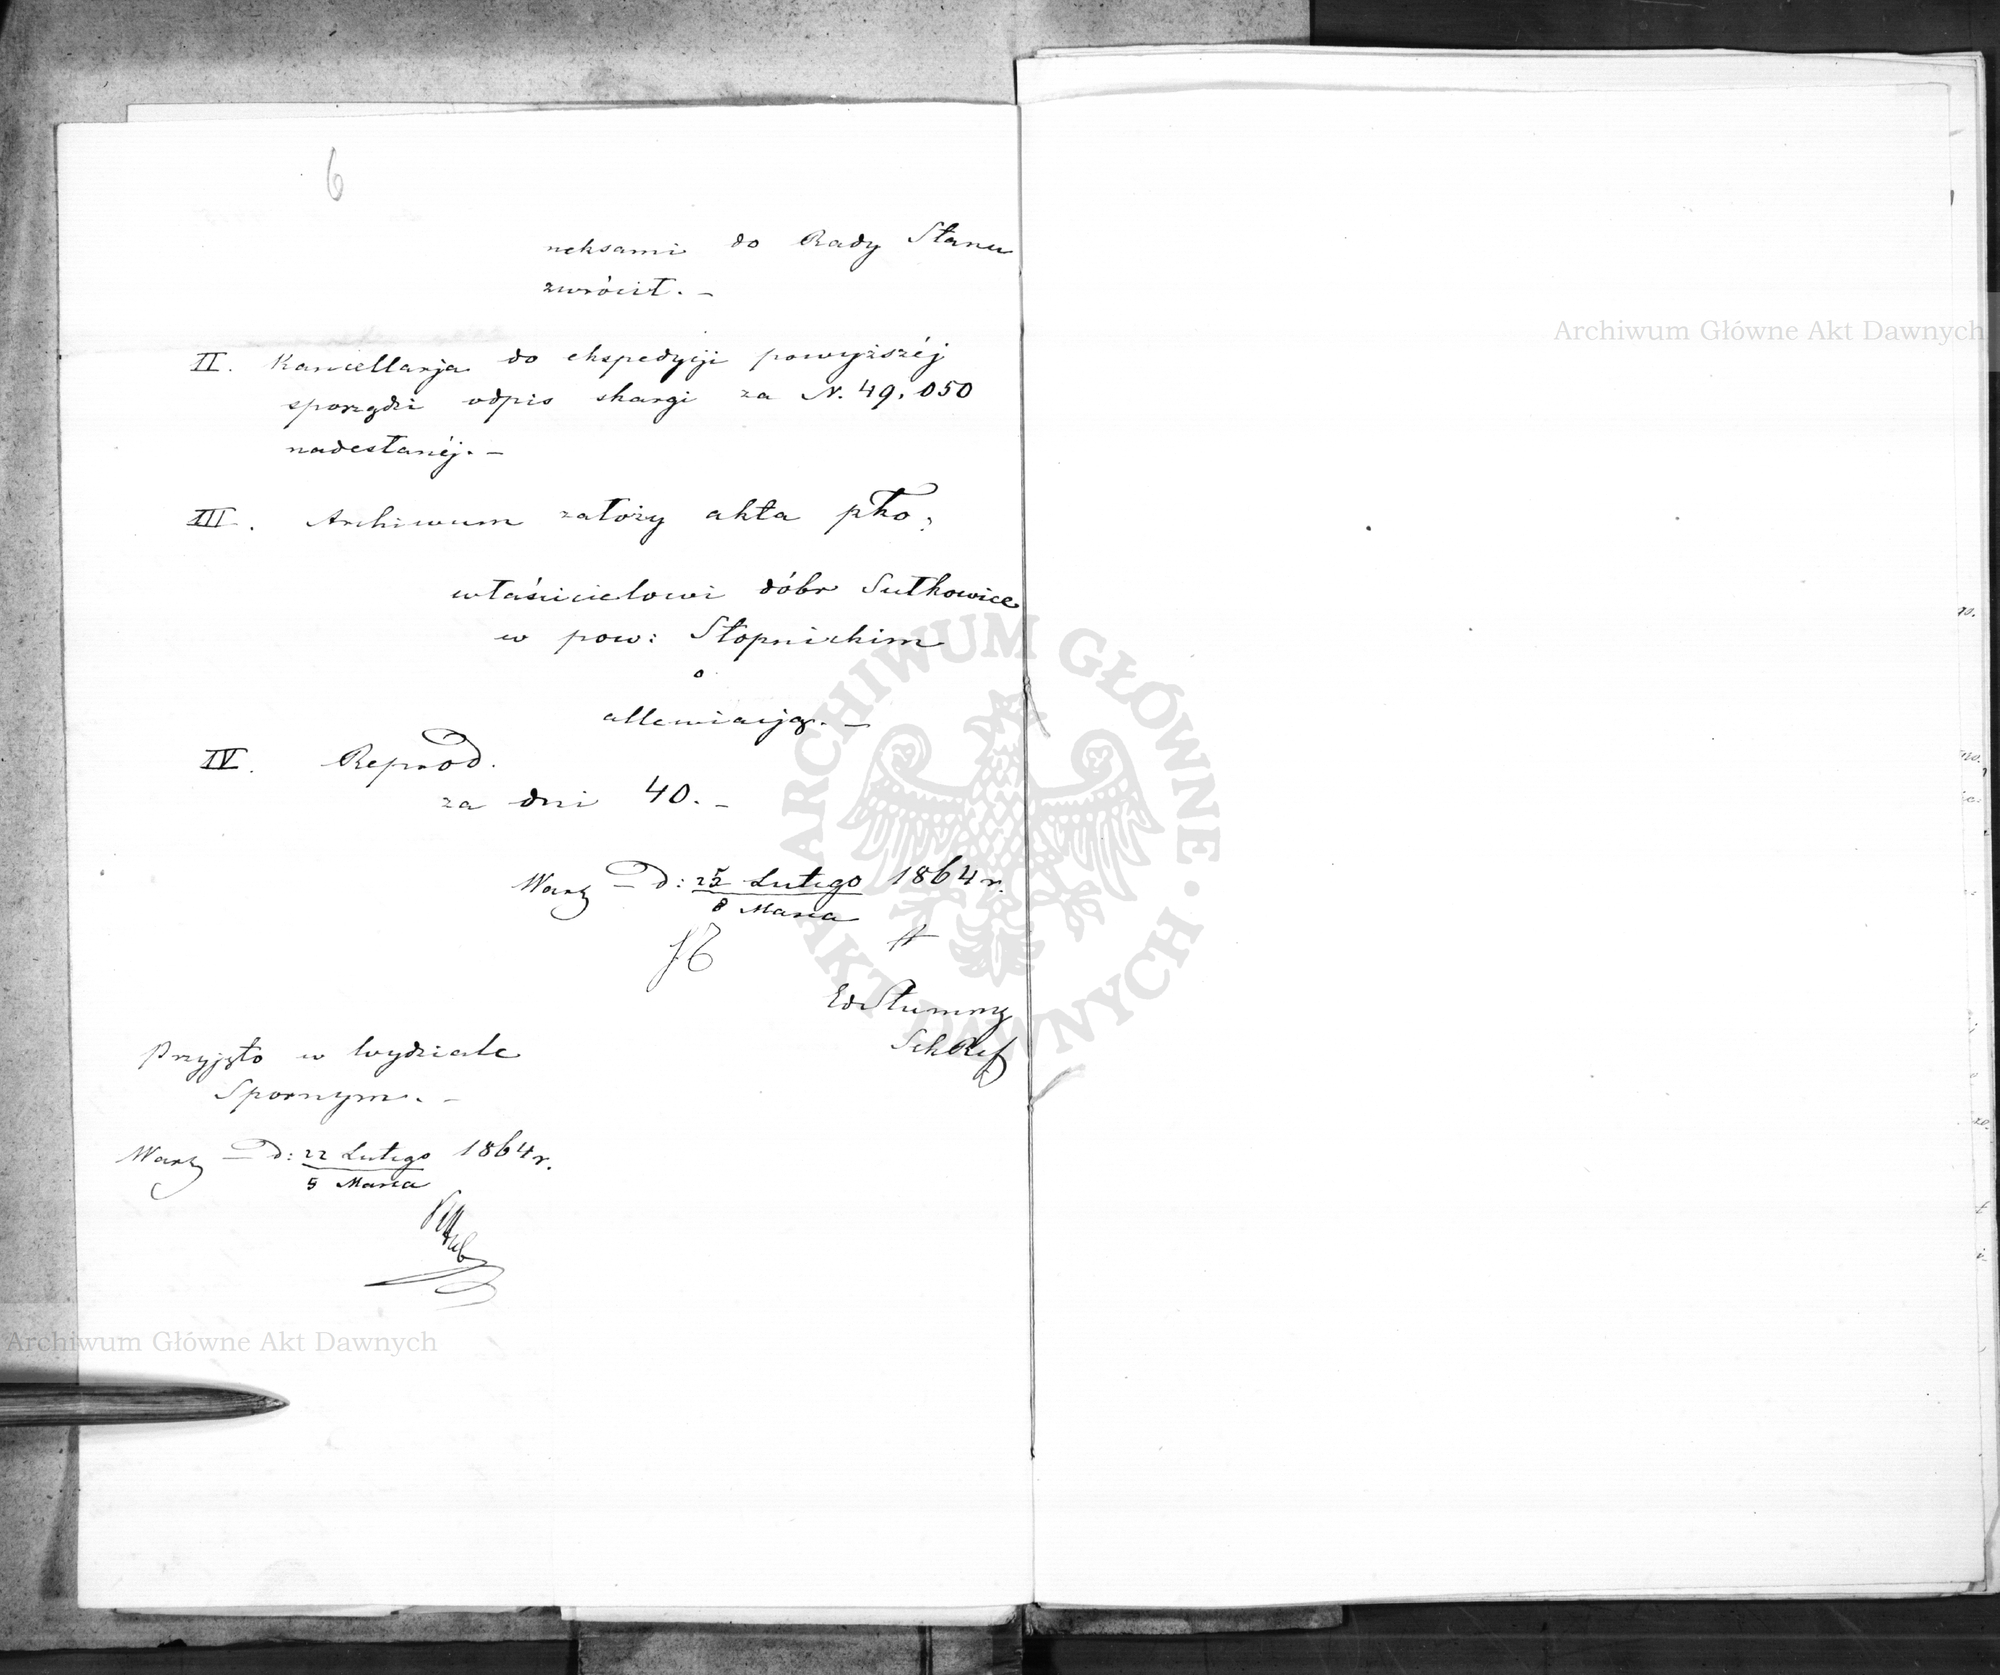 6
neksami do Rady Stanu
zwrócił. –
II. Kancellarja do ekspedycji powyższéj
sporządzi odpis skargi za N. 49,050
nadesłanéj. –
III. Archiwum założy akta pko:
właścicielowi dóbr Sułkowice
w pow: Stopnickim
o
allewiacją. –
IV. Reprod.
za dni 40. –
Warz – d: 25 Lutego 1864 r.
8 Marca
Ed Stummy
Sek Ref
Przyjęto w Wydziale
Spornym. –
Warz – d: 22 Lutego 1864 r.
5 Marca
Archiwum Główne Akt Dawnych
Archiwum Główne Akt Dawnych
ARCHIWUM GŁÓWNE AKT DAWNYCH